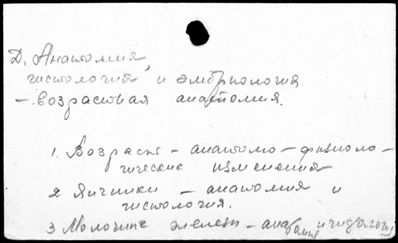 Д. Анатомия,
гистология и эмбриология.
– возрастная анатомия.
1. Возраст – анатомо-физиоло-
гические изменения
2 Яичники – анатомия и
гистология.
3 Молочные железы – анатомия и гистология